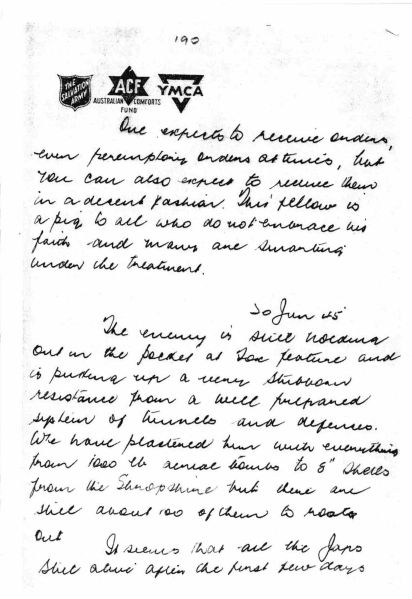 190
THE SALVATION ARMY
ACF
AUSTRALIAN COMFORTS FUND
YMCA
One expects to receive orders,
even peremptory orders at times, but
you can also expect to receive them
in a decent fashion. This fellow is
a pig to all who do not embrace his
faith and many are smarting
under the treatment.
20 Jun 45
The enemy is still holding
out in the pocket at Sox feature and
is putting up a very stubborn
resistance from a well prepared
system of tunnels and defences.
We have plastered him with everything
from 1000 lb aerial bombs to 8" shells
from the Shropshire but there are
still about 100 of them to root
out
It seems that all the Japs
still alive after the first few days